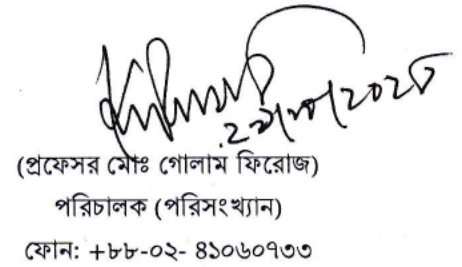 (প্রফেসর মোঃ গোলাম ফিরোজ)
পরিচালক (পরিসংখ্যান)
ফোন: +৮৮-০২- ৪১০৬০৭৩৩